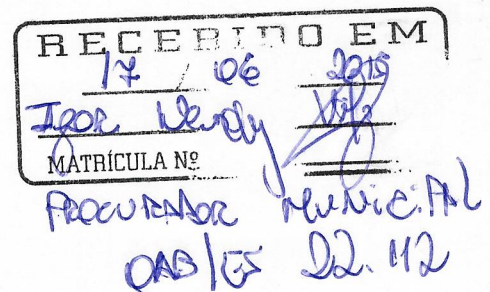 RECEBIDO EM
17 / 06 2019
Igor
MATRÍCULA Nº
PROCURADOR MUNICIPAL
OAB/ES 22.112